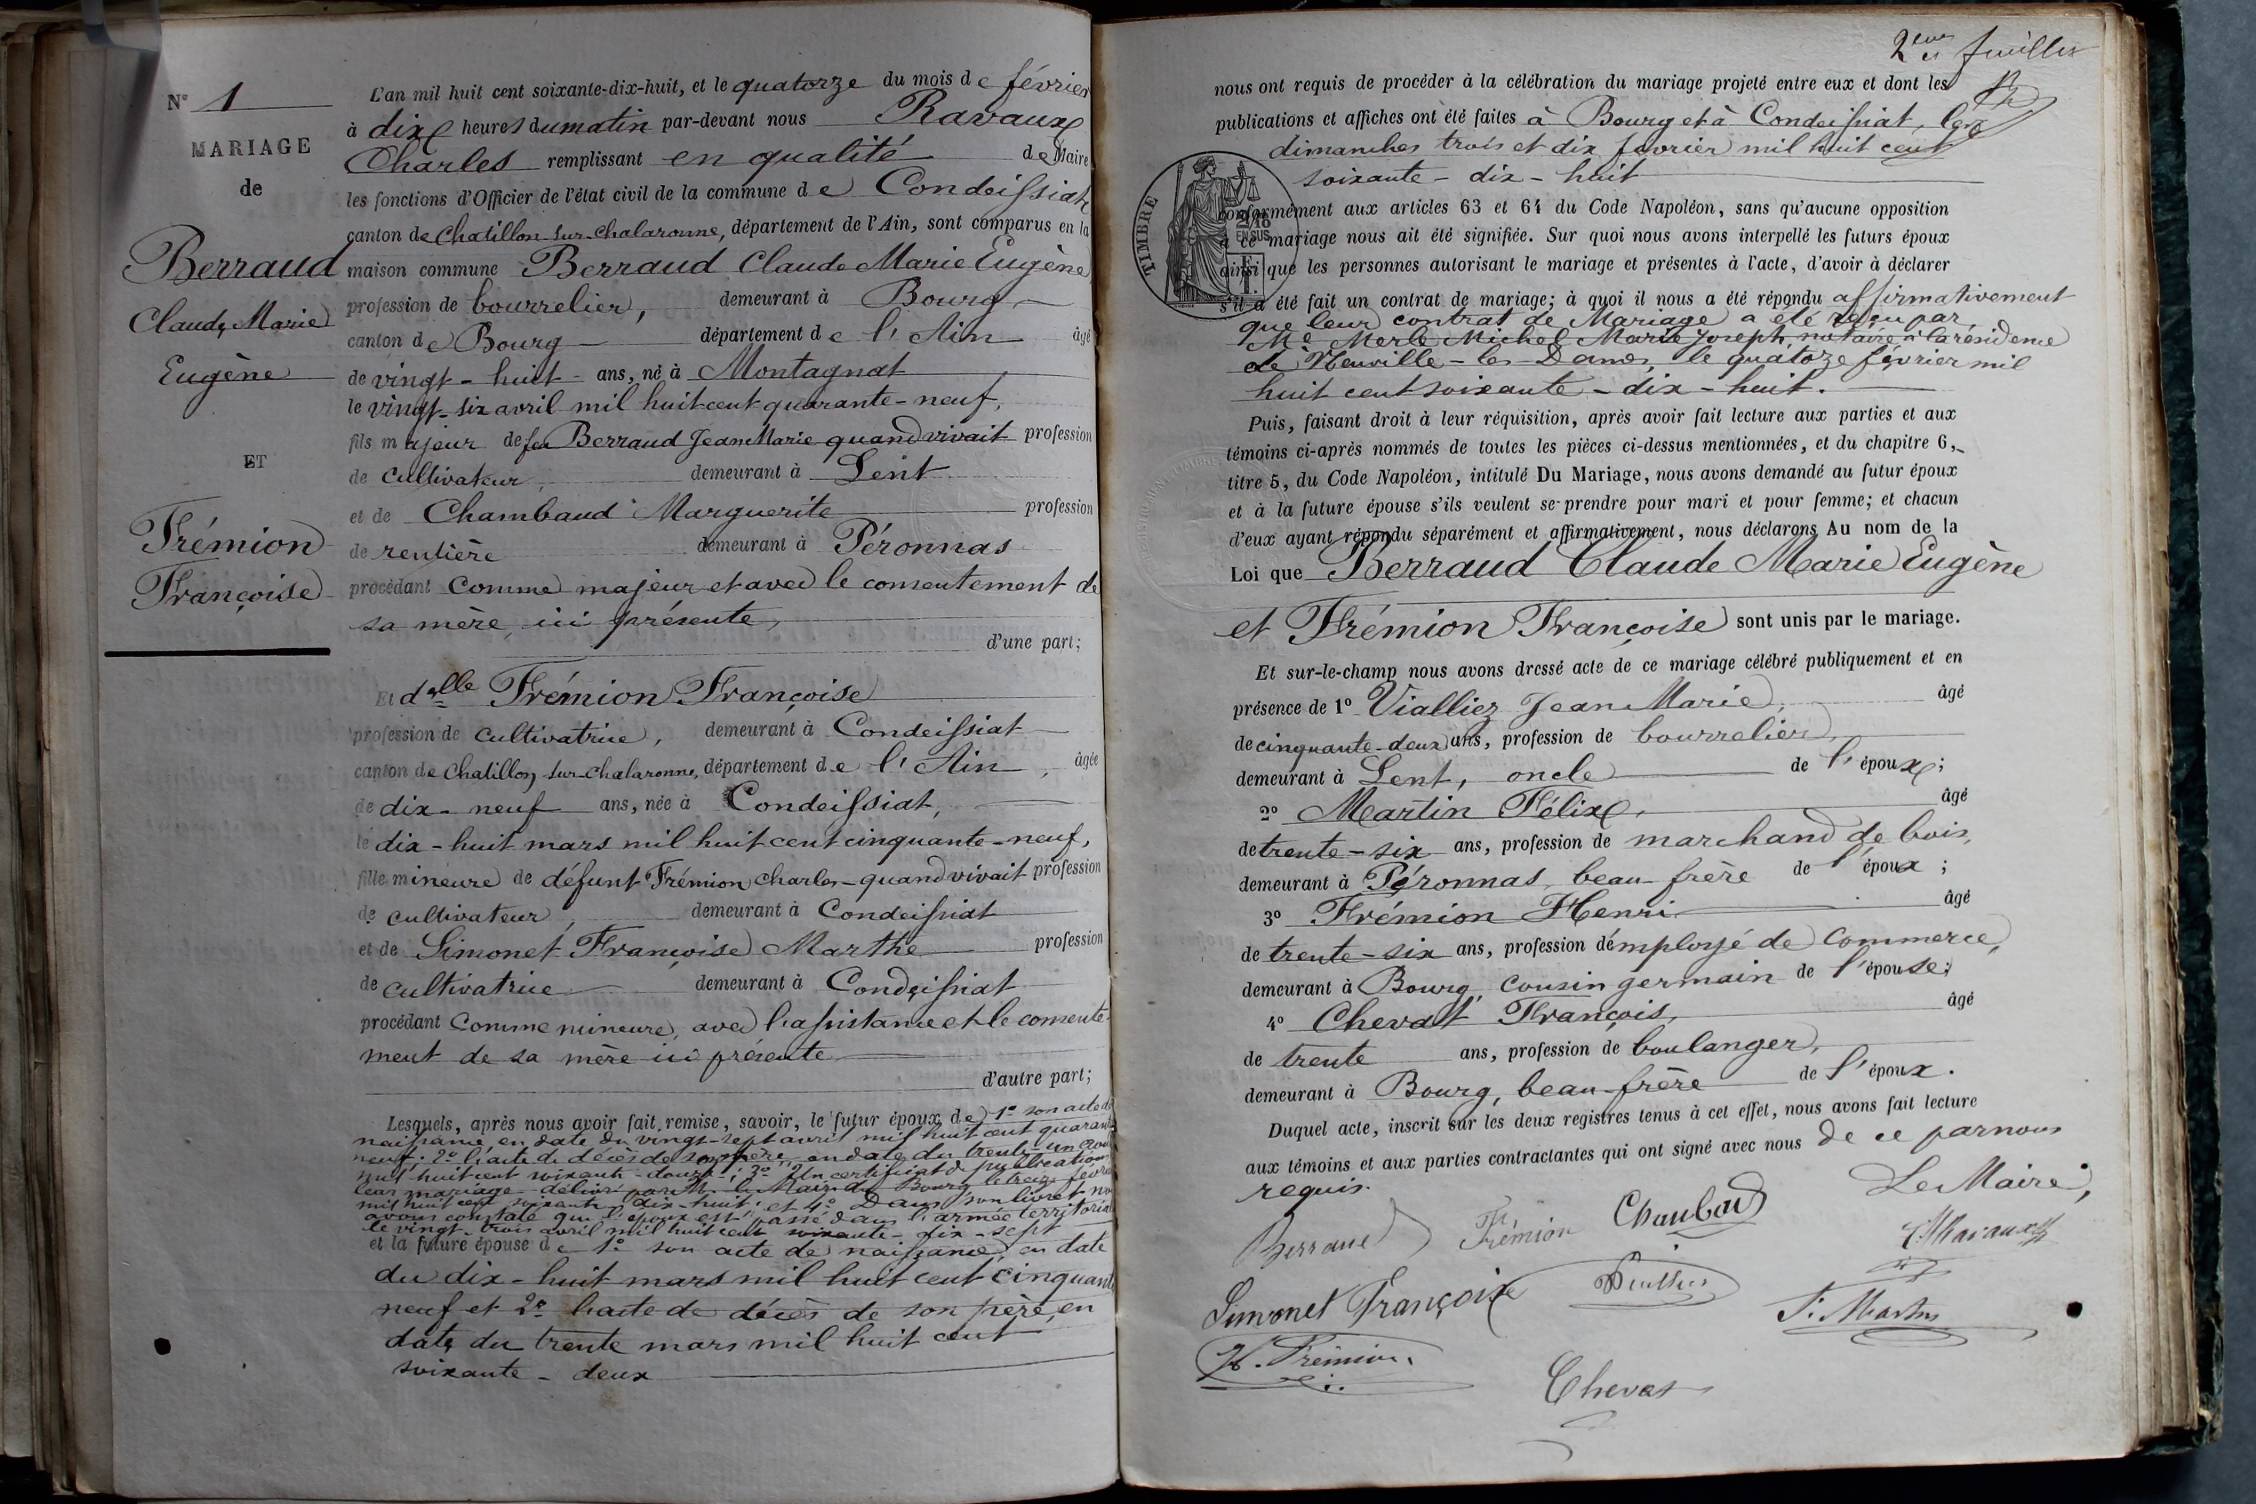 N° 1
MARIAGE
de
Berraud
Claude Marie
Eugène
ET
Frémion
Françoise
L'an mil huit cent soixante-dix-huit, et le quatorze du mois de février
à dix heures du matin par-devant nous Ravaux
Charles remplissant en qualité de Maire
les fonctions d'Officier de l'état civil de la commune de Condeissiat
canton de Chatillon-sur-Chalaronne, département de l'Ain, sont comparus en la
maison commune Berraud Claude Marie Eugène,
profession de bourrelier, demeurant à Bourg,
canton de Bourg département de l'Ain âgé
de vingt-huit ans, né à Montagnat
le vingt-six avril mil huit cent quarante-neuf,
fils majeur de feu Berraud Jean Marie quand vivait profession
de cultivateur, demeurant à Lent
et de Chambaud Marguerite profession
de rentière demeurant à Péronnas
procédant comme majeur et avec le consentement de
sa mère, ici présente,
d'une part;
Et dlle Frémion Françoise
profession de cultivatrice, demeurant à Condeissiat
canton de Chatillon sur-Chalaronne, département de l'Ain, âgée
de dix-neuf ans, née à Condeissiat,
le dix-huit mars mil huit cent cinquante-neuf,
fille mineure de défunt Frémion Charles-quand vivait profession
de cultivateur, demeurant à Condeissiat
et de Simonet Françoise Marthe profession
de cultivatrice demeurant à Condeissiat
procédant comme mineure, avec l'assistance et le consente-
ment de sa mère ici présente
d'autre part;
Lesquels, après nous avoir fait remise, savoir, le futur époux de 1° son acte de
naissance, en date du vingt-sept avril mil huit cent quarante
neuf; 2° l'acte de décès de son père, en date du trente-un
mil huit cent soixante-douze; 3° Un certificat de publication
mariage délivré par M. le Maire de Bourg, le treize février
mil huit cent soixante-dix-huit; et 4° Dans son livret nous
avons constaté que l'époux est passé dans l'armée territoriale
le vingt-trois avril mil huit cent soixante-dix-sept
et la future épouse de 1° son acte de naissance, en date
du dix-huit mars mil huit cent cinquante
neuf et 2° l'acte de décès de son père, en
date du trente mars mil huit cent
soixante-deux
2eme feuillet
nous ont requis de procéder à la célébration du mariage projeté entre eux et dont les
publications et affiches ont été faites à Bourg et à Condeissiat, les
dimanches trois et dix février mil huit cent
soixante-dix-huit
TIMBRE
2/10
EN SUS
conformément aux articles 63 et 64 du Code Napoléon, sans qu'aucune opposition
à ce mariage nous ait été signifiée. Sur quoi nous avons interpellé les futurs époux
ainsi que les personnes autorisant le mariage et présentes à l'acte, d'avoir à déclarer
s'il a été fait un contrat de mariage; à quoi il nous a été répondu affirmativement
que leur contrat de Mariage a été reçu par
Me Merle Michel Marie Joseph, notaire à la résidence
de Neuville-les-Dames, le quatorze février mil
huit cent soixante-dix-huit.
Puis, faisant droit à leur réquisition, après avoir fait lecture aux parties et aux
témoins ci-après nommés de toutes les pièces ci-dessus mentionnées, et du chapitre 6,
titre 5, du Code Napoléon, intitulé Du Mariage, nous avons demandé au futur époux
et à la future épouse s'ils veulent se prendre pour mari et pour femme; et chacun
d'eux ayant répondu séparément et affirmativement, nous déclarons Au nom de la
Loi que Berraud Claude Marie Eugène
et Frémion Françoise sont unis par le mariage.
Et sur-le-champ nous avons dressé acte de ce mariage célébré publiquement et en
présence de 1° Vialliez Jean Marie, âgé
de cinquante-deux ans, profession de bourrelier,
demeurant à Lent, oncle de l'époux;
2° Martin Félix, âgé
de trente-six ans, profession de marchand de bois,
demeurant à Péronnas, beau-frère de l'époux;
3° Frémion Henri âgé
de trente-six ans, profession d'employé de commerce,
demeurant à Bourg, cousin germain de l'épouse;
4° Chevat François, âgé
de trente ans, profession de boulanger,
demeurant à Bourg, beau-frère de l'époux.
Duquel acte, inscrit sur les deux registres tenus à cet effet, nous avons fait lecture
aux témoins et aux parties contractantes qui ont signé avec nous de ce par nous
requis.
Le Maire,
Berraud Frémion Chanbaud
Ravaux
Simonet Françoise
F. Martin
H. Frémion
Chevat